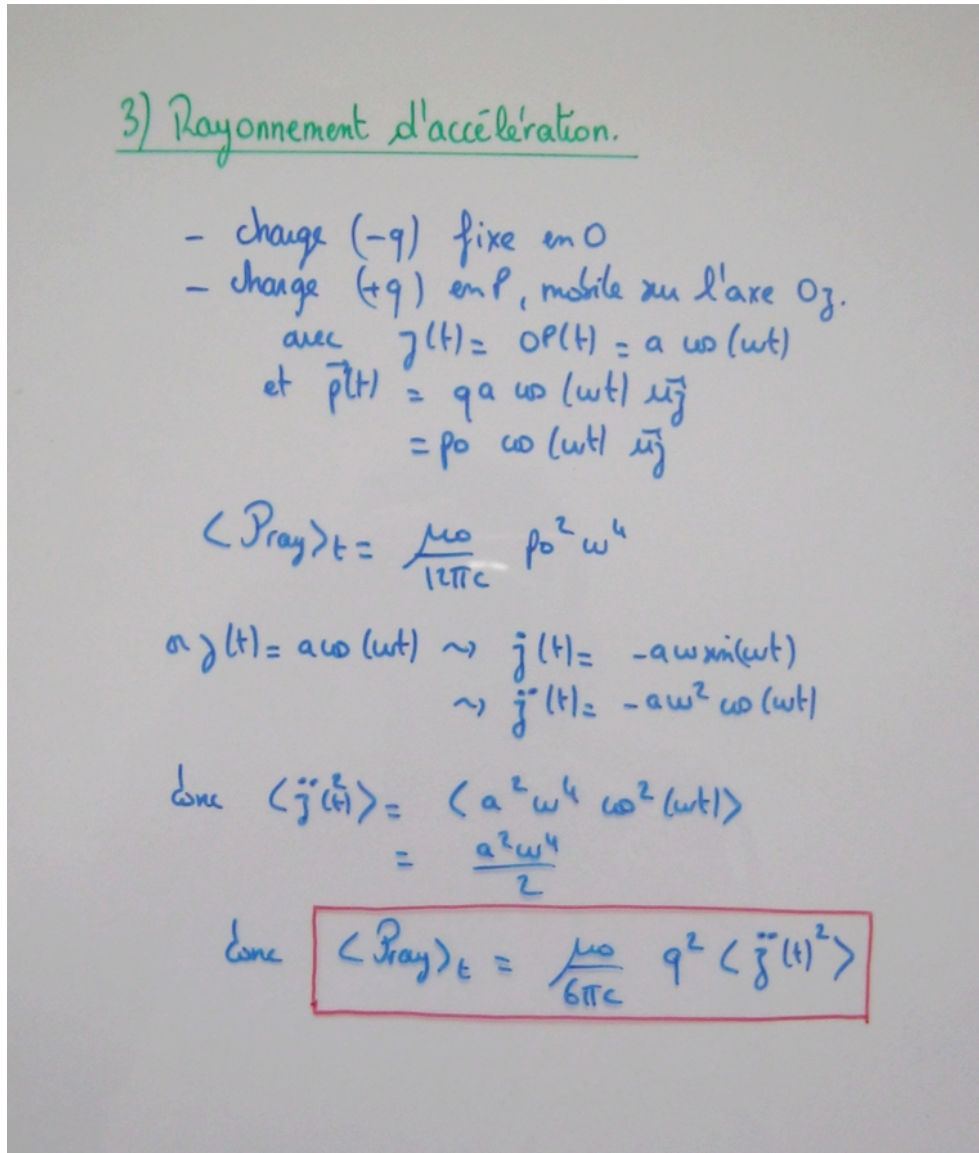 3) Rayonnement d'accélération.
- charge (-q) fixe en O
- charge (+q) en P, mobile sur l'axe Oz.
avec z(t) = OP(t) = a cos(ωt)
et p⃗(t) = qa cos(ωt) u⃗z
= p₀ cos(ωt) u⃗z
<Pray>t = μ₀/12πc p₀² ω⁴
or z(t) = a cos(ωt) ⇝ ż(t) = -aω sin(ωt)
⇝ z̈(t) = -aω² cos(ωt)
donc <z̈(t)²> = <a²ω⁴ cos²(ωt)>
= a²ω⁴/2
donc <Pray>t = μ₀/6πc q² <z̈(t)²>